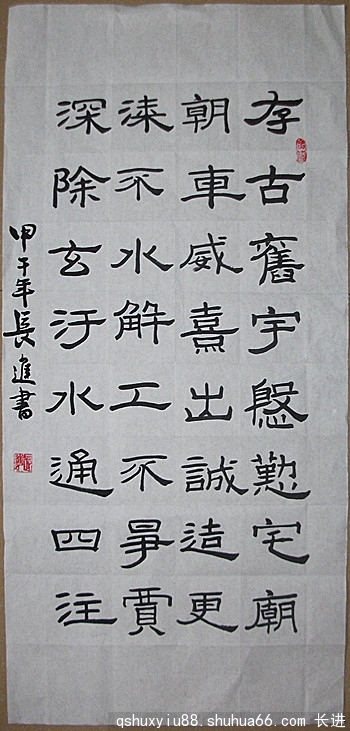 存古舊宇慇懃宅廟
朝車威熹出誠造更
漆不水解工不爭賈
深除玄汙水通四注
甲午年長進書
qshuxyiu88.shuhua66.com 长进